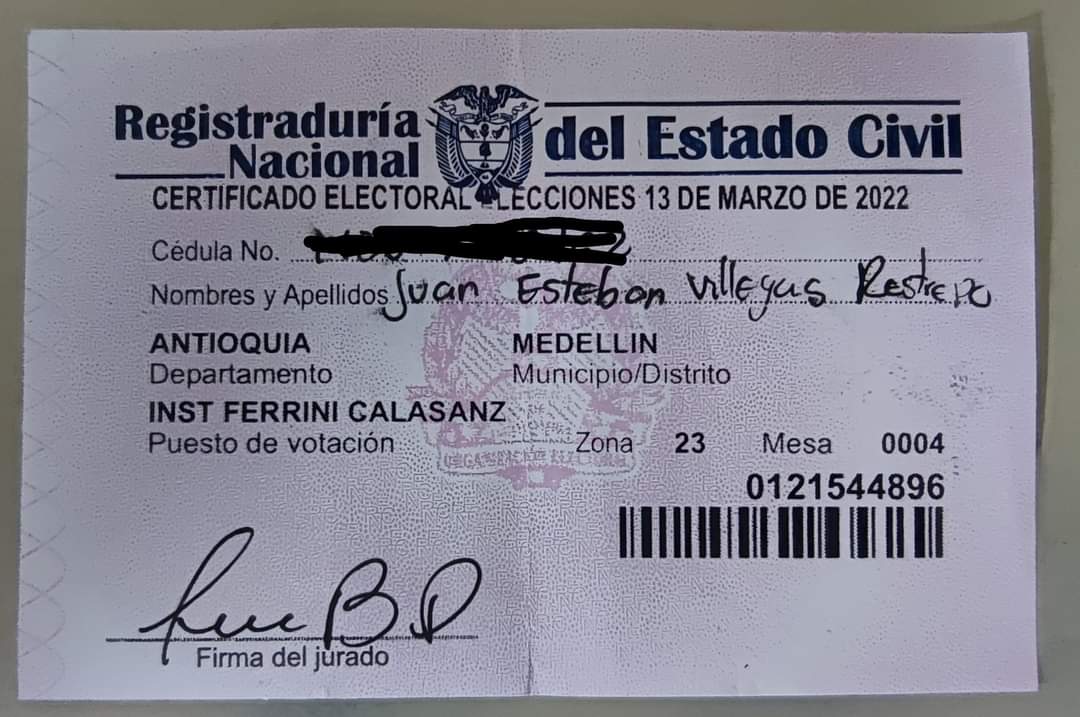 Registraduría
Nacional
del Estado Civil
CERTIFICADO ELECTORAL ELECCIONES 13 DE MARZO DE 2022
Cédula No.
Nombres y Apellidos Juan Esteban Villegas Restrepo
ANTIOQUIA MEDELLIN
Departamento Municipio/Distrito
INST FERRINI CALASANZ
Puesto de votación Zona 23 Mesa 0004
0121544896
Firma del jurado